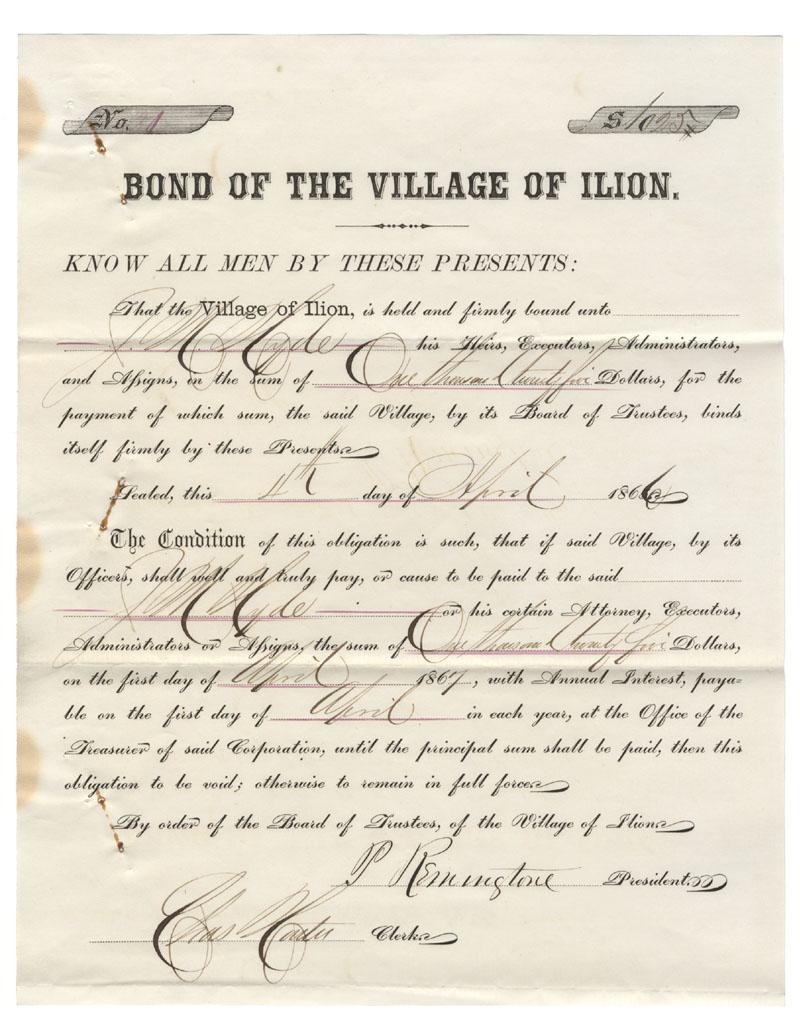 No. 1
$1025
BOND OF THE VILLAGE OF ILION.
KNOW ALL MEN BY THESE PRESENTS:
That the Village of Ilion, is held and firmly bound unto
J. M. Hyde his Heirs, Executors, Administrators,
and Assigns, in the sum of One thousand twenty five Dollars, for the
payment of which sum, the said Village, by its Board of Trustees, binds
itself firmly by these Presents.
Sealed, this 4th day of April 1866
The Condition of this obligation is such, that if said Village, by its
Officers, shall well and truly pay, or cause to be paid to the said
J. M. Hyde or his certain Attorney, Executors,
Administrators or Assigns, the sum of One thousand twenty five Dollars,
on the first day of April 1867, with Annual Interest, paya-
ble on the first day of April in each year, at the Office of the
Treasurer of said Corporation, until the principal sum shall be paid, then this
obligation to be void; otherwise to remain in full force.
By order of the Board of Trustees, of the Village of Ilion.
P Remington President.
Chas Clerk.